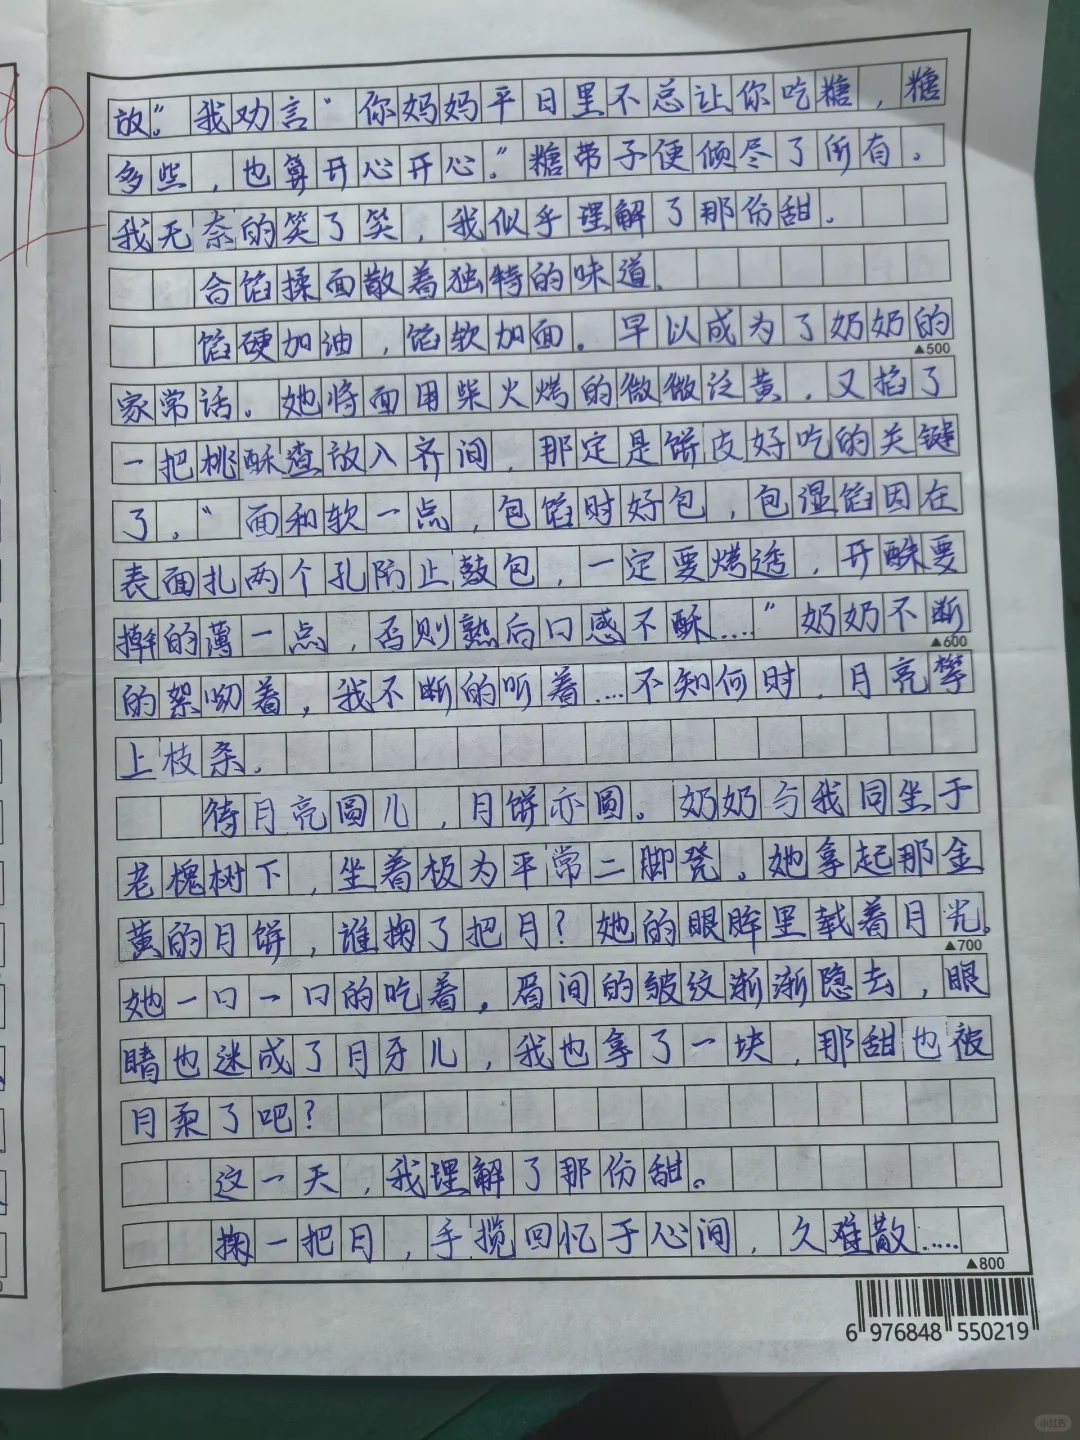 放。”我劝言“你妈妈平日里不总让你吃糖，糖
多些，也算开心开心。”糖带子便倾尽了所有。
我无奈的笑了笑，我似乎理解了那份甜。
合馅揉面散着独特的味道。
馅硬加油，馅软加面。早以成为了奶奶的
▲500
家常话。她将面用柴火烤的微微泛黄，又掐了
一把桃酥渣放入齐间，那定是饼皮好吃的关键
了，“面和软一点，包馅时好包，包湿馅因在
表面扎两个孔防止鼓包，一定要烤透，开酥要
擀的薄一点，否则熟后口感不酥....”奶奶不断
▲600
的絮呦着，我不断的听着....不知何时，月亮攀
上枝条。
待月亮圆儿，月饼亦圆。奶奶与我同坐于
老槐树下，坐着极为平常二脚凳。她拿起那金
黄的月饼，谁掬了把月？她的眼眸里载着月光。
▲700
她一口一口的吃着，眉间的皱纹渐渐隐去，眼
睛也迷成了月牙儿，我也拿了一块，那甜也被
月柔了吧？
这一天，我理解了那份甜。
掬一把月，手揽回忆于心间，久难散.....
▲800
6 976848 550219
小红书